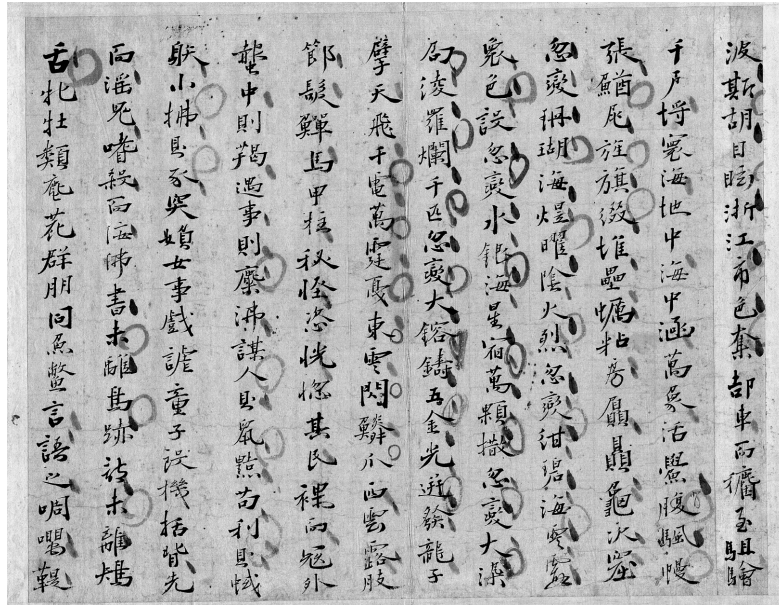 波斯胡目眩浙江市色奪部車而穧至駔驓
千戶埒寰海地中海中涵萬象活鱟腹颿幔
張鰌尾旌旗綴堆壘蠣粘房屭贔龜次窟
忽變珊瑚海煜曜陰火烈忽變紺碧海雯霞
衆色設忽變水銀海星宿萬顆撒忽變大染
局淩羅爛千匹忽變大鎔鑄五金光迸發龍子
擘天飛千電萬霆戛東雲閃鱗爪西雲露肢
節髮鱓馬甲柱秘怪恣恍惚其民裸而冠外
螫中則羯遇事則麋沸謀人則鼠黠苟利則蜮
射小拂則豕突婦女事戲謔童子設機括背先
而淫鬼嗜殺而侫佛書未離鳥跡詩未離鴂
舌牝牡類麀花群朋同魚鱉言語之啁嘐鞮